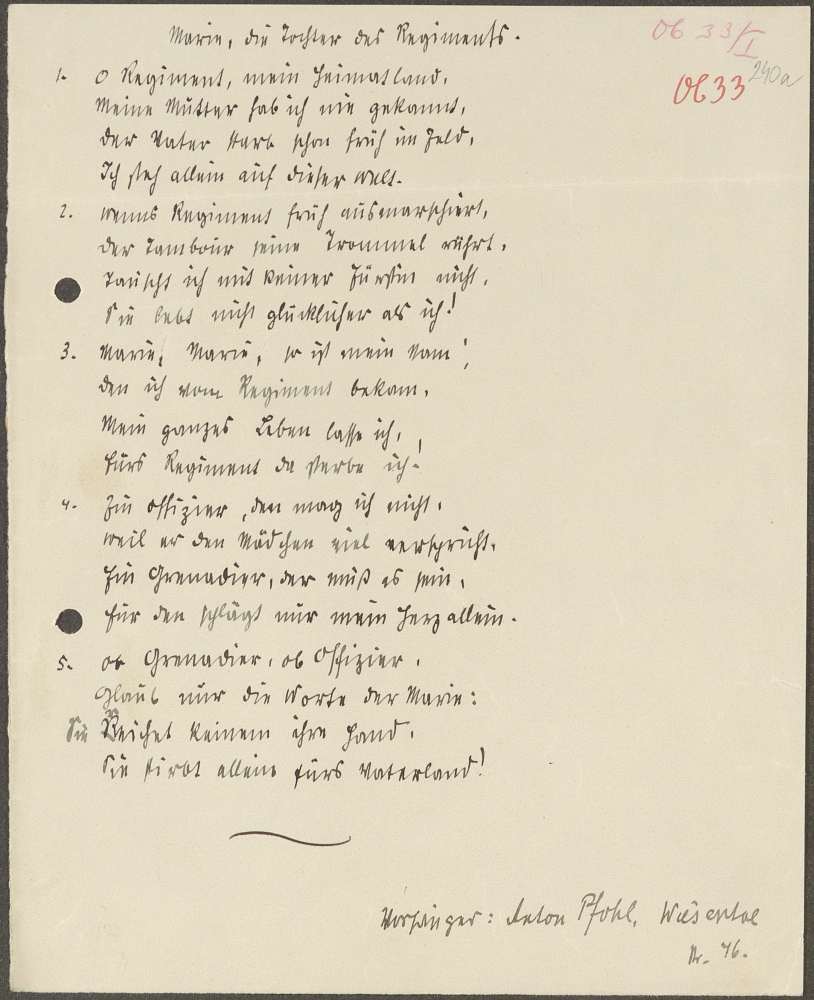 Marie, die Tochter des Regiments.
Ob 33/I
240a
Ob 33
1. O Regiment, mein Heimatland,
Meine Mutter hab ich nie gekannt,
der Vater starb schon früh im Feld,
Ich steh allein auf dieser Welt.
2. wenns Regiment früh ausmarschiert,
der Tambour seine Trommel rührt,
Tauscht ich mit keiner Fürstin nicht,
Sie lebt nicht glücklicher als ich!
3. Marie, Marie, so ist mein Nam',
den ich vom Regiment bekam.
Mein ganzes Leben lasse ich,
fürs Regiment da sterbe ich!
4. Ein Offizier, den mag ich nicht,
weil er den Mädchen viel verspricht.
Ein Grenadier, der muß es sein,
für den schlägt nur mein Herz allein.
5. ob Grenadier, ob Offizier,
Glaub nur die Worte der Marie:
Sie Reichet keinem ihre Hand,
Sie stirbt allein fürs Vaterland!
Vorsänger: Anton Pfohl, Wiesental
Nr. 76.